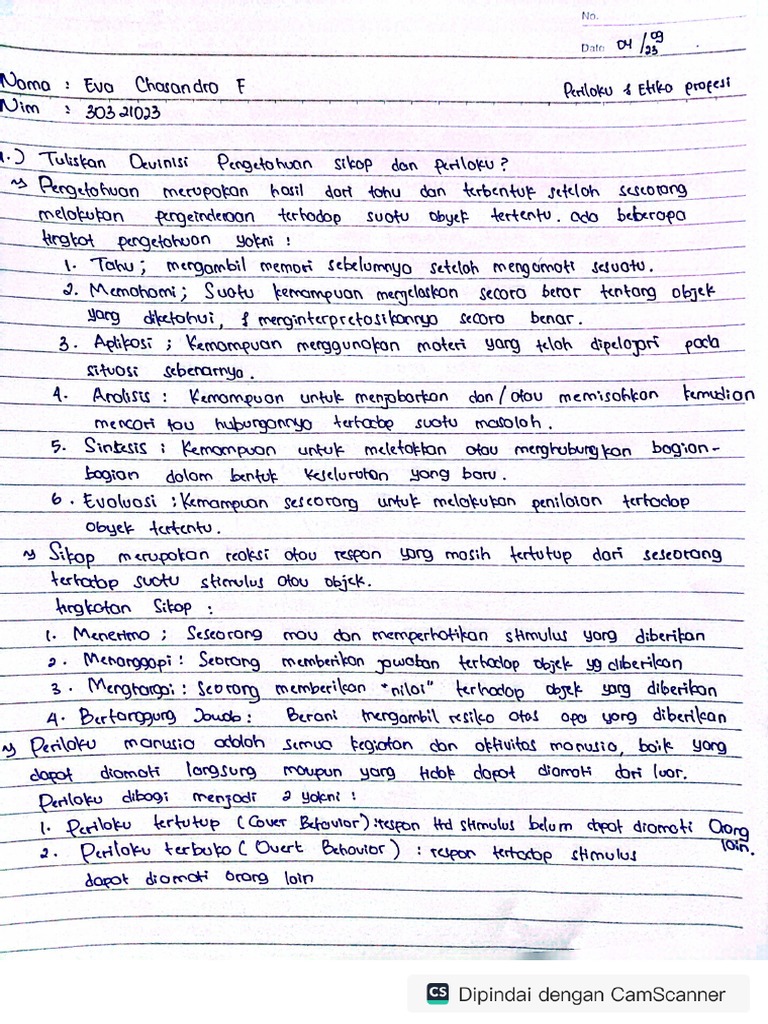 No.
Date 04/09/23
Nama : Eva Chasandra F
Perilaku & Etika profesi
Nim : 30321023
1.) Tuliskan Devinisi Pengetahuan sikap dan perilaku?
~> Pengetahuan merupakan hasil dari tahu dan terbentuk setelah seseorang
melakukan pengeinderaan terhadap suatu obyek tertentu. ada beberapa
tingkat pengetahuan yakni :
1. Tahu ; mengambil memori sebelumnya setelah mengamati sesuatu.
2. Memahami ; Suatu kemampuan menjelaskan secara benar tentang objek
yang diketahui, & menginterpretasikannya secara benar.
3. Aplikasi ; Kemampuan menggunakan materi yang telah dipelajari pada
situasi sebenarnya.
4. Analisis : Kemampuan untuk menjabarkan dan/atau memisahkan kemudian
mencari tau hubungannya terhadap suatu masalah.
5. Sintesis : Kemampuan untuk meletakkan atau menghubungkan bagian-
bagian dalam bentuk keseluruhan yang baru.
6. Evaluasi : Kemampuan seseorang untuk melakukan penilaian terhadap
obyek tertentu.
~> Sikap merupakan reaksi atau respon yang masih tertutup dari seseorang
terhadap suatu stimulus atau objek.
tingkatan Sikap :
1. Menerima ; Seseorang mau dan memperhatikan stimulus yang diberikan
2. Menanggapi : Seorang memberikan jawaban terhadap objek yg diberikan
3. Menghargai : Seorang memberikan "nilai" terhadap objek yang diberikan
4. Bertanggung Jawab : Berani mengambil resiko atas apa yang diberikan
~> Perilaku manusia adalah semua kegiatan dan aktivitas manusia, baik yang
dapat diamati langsung maupun yang tidak dapat diamati dari luar.
Perilaku dibagi menjadi 2 yakni :
1. Perilaku tertutup (Cover Behavior) : respon thd stimulus belum dapat diamati Orang
lain.
2. Perilaku terbuka (Overt Behavior) : respon terhadap stimulus
dapat diamati orang lain
CS Dipindai dengan CamScanner